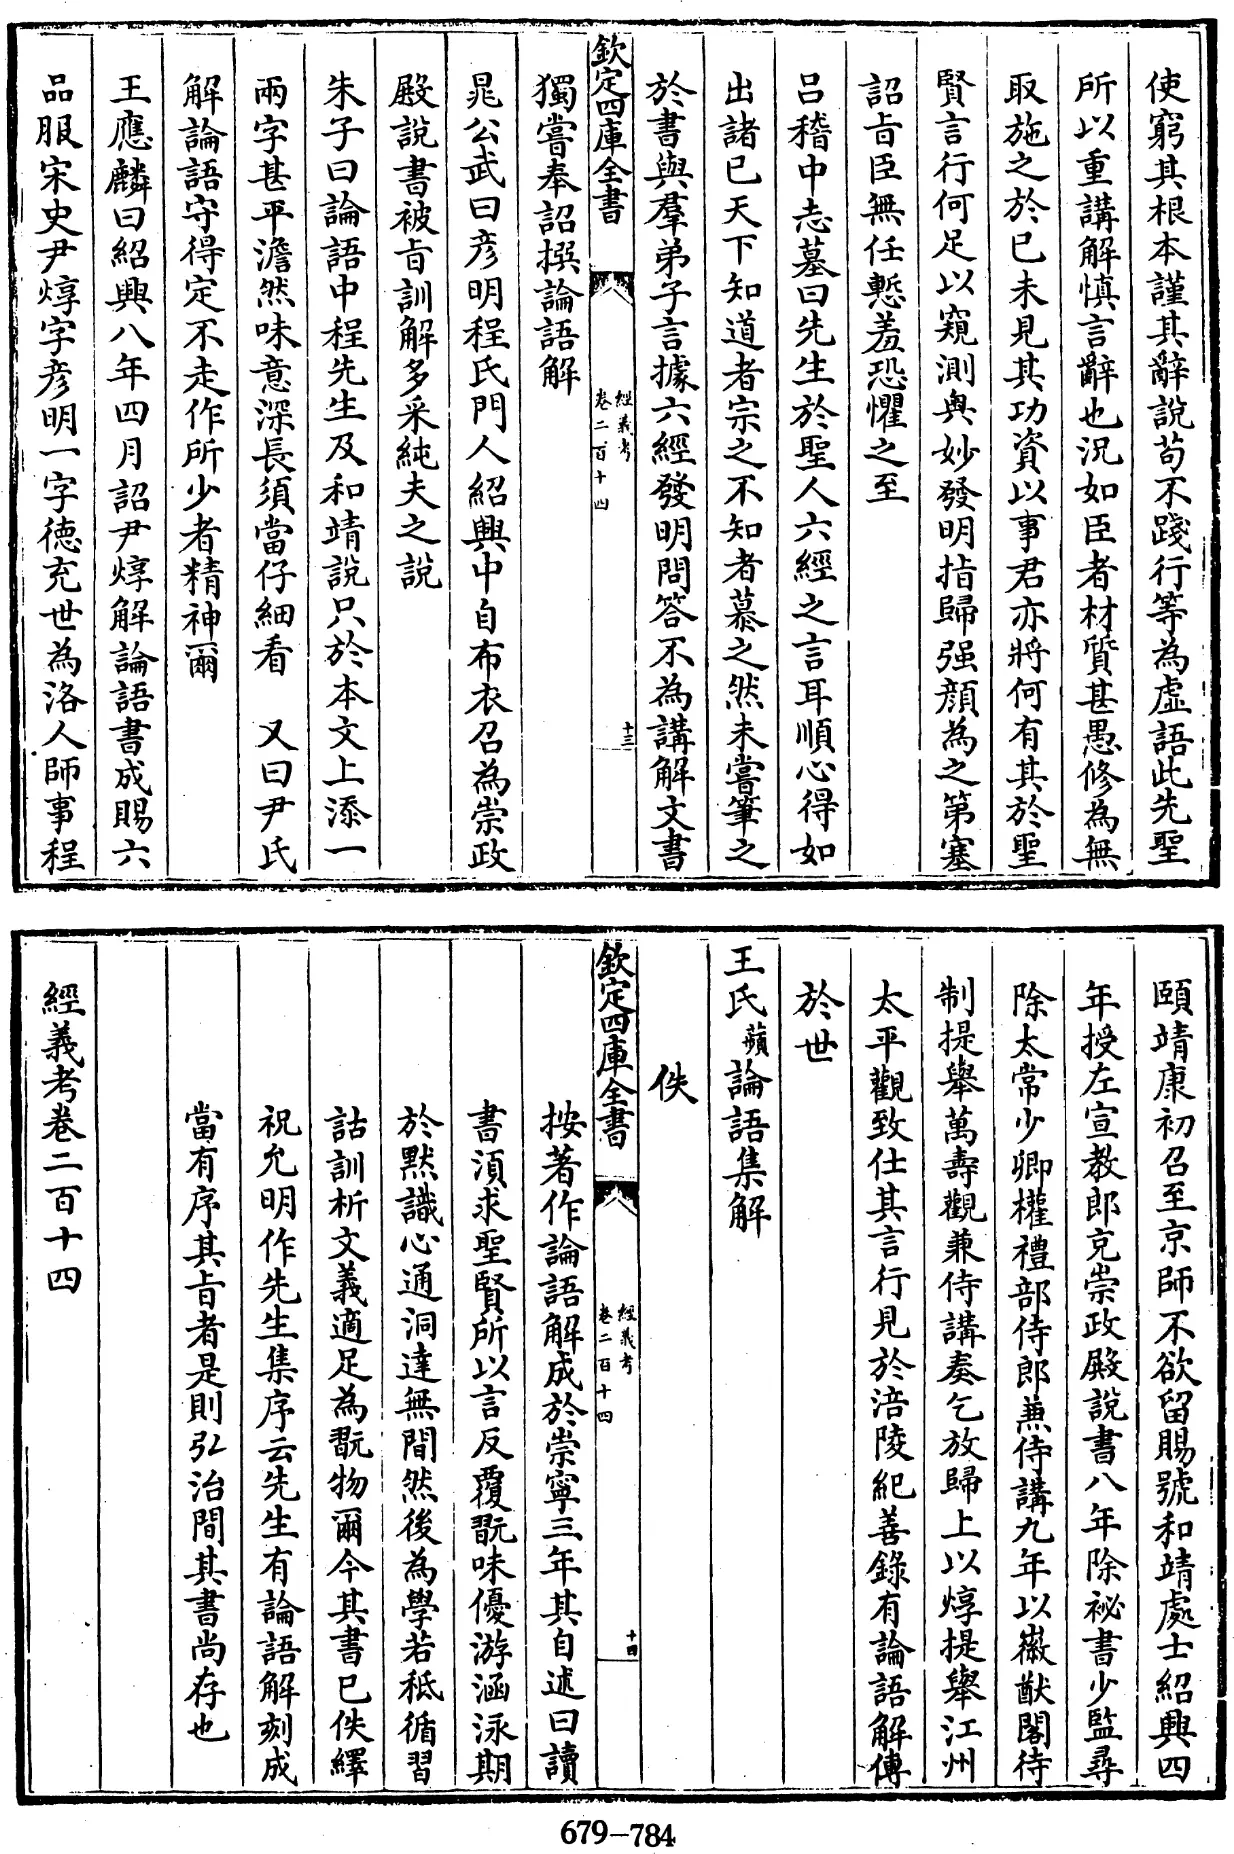 使窮其根本謹其辭說苟不踐行等為虛語此先聖
所以重講解慎言辭也況如臣者材質甚愚修為無
取施之於己未見其功資以事君亦將何有其於聖
賢言行何足以窺測奥妙發明指歸强顔為之第塞
詔㫖臣無任慙羞恐懼之至
吕稽中志墓曰先生於聖人六經之言耳順心得如
出諸己天下知道者宗之不知者慕之然未嘗筆之
於書與羣弟子言據六經發明問答不為講解文書
欽定四庫全書
經義考
卷二百十四
十三
獨嘗奉詔撰論語解
晁公武曰彦明程氏門人紹興中自布衣召為崇政
殿說書被㫖訓解多采純夫之說
朱子曰論語中程先生及和靖說只於本文上添一
兩字甚平澹然味意深長須當仔細看 又曰尹氏
解論語守得定不走作所少者精神爾
王應麟曰紹興八年四月詔尹焞解論語書成賜六
品服宋史尹焞字彦明一字德充世為洛人師事程
頤靖康初召至京師不欲留賜號和靖處士紹興四
年授左宣教郎充崇政殿說書八年除祕書少監尋
除太常少卿權禮部侍郎兼侍講九年以徽猷閣待
制提舉萬壽觀兼侍講奏乞放歸上以焞提舉江州
太平觀致仕其言行見於涪陵紀善錄有論語解傳
於世
王氏蘋論語集解
佚
欽定四庫全書
經義考
卷二百十四
十四
按著作論語解成於崇寧三年其自述曰讀
書湏求聖賢所以言反覆翫味優游涵泳期
於黙識心通洞達無間然後為學若秪循習
詁訓析文義適足為翫物爾今其書已佚繹
祝允明作先生集序云先生有論語解刻成
當有序其㫖者是則弘治間其書尚存也
經義考卷二百十四
679-784